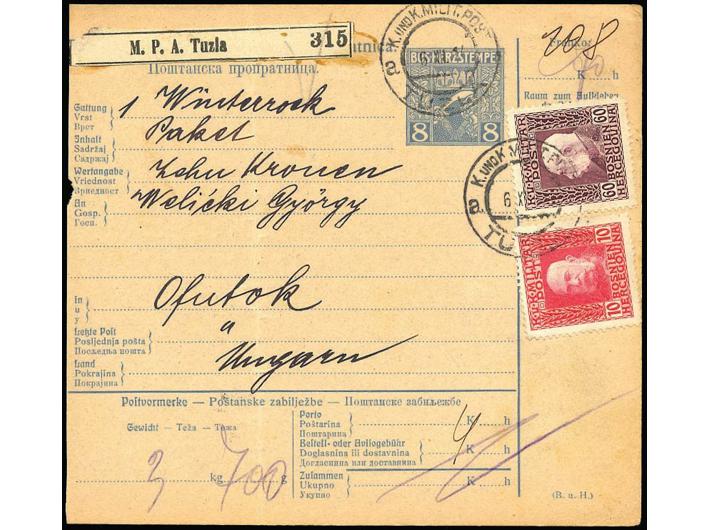 M. P. A. Tuzla 315
108
Поштанска пропратница.
K h
Raum zum Aufkleben
K. UND K. MILIT. POST
8 8
60 60
K.u.K. MILITÄR POST
BOSNIEN HERCEGOVINA
Gattung
Vrst
Врст
1 Winterrock
Inhalt
Sadržaj
Садржај
Paket
Wertangabe
Vriednost
Вриједност
Zehn Kronen
An
Gosp.
Госп.
Welicki György
a K. UND K. MILIT. POST
6 XI
TUZLA
10 10
K.u.K. MILITÄR POST
BOSNIEN HERCEGOVINA
In
u
у
Ofutok
Letzte Post
Posljednja pošta
Посљедња пошта
a
Land
Pokrajina
Покрајина
Ungarn
Postvormerke — Poštanske zabilježbe — Поштанске забиљежбе
Gewicht — Teža — Тежа
3 kg 700 g
Porto
Poštarina
Поштарина
K h
Bestell- oder Avisogebühr
Doglasnina ili dostavnina
Догласнина или доставнина
4 K h
Zusammen
Ukupno
Укупно
K h
(B. u. H.)